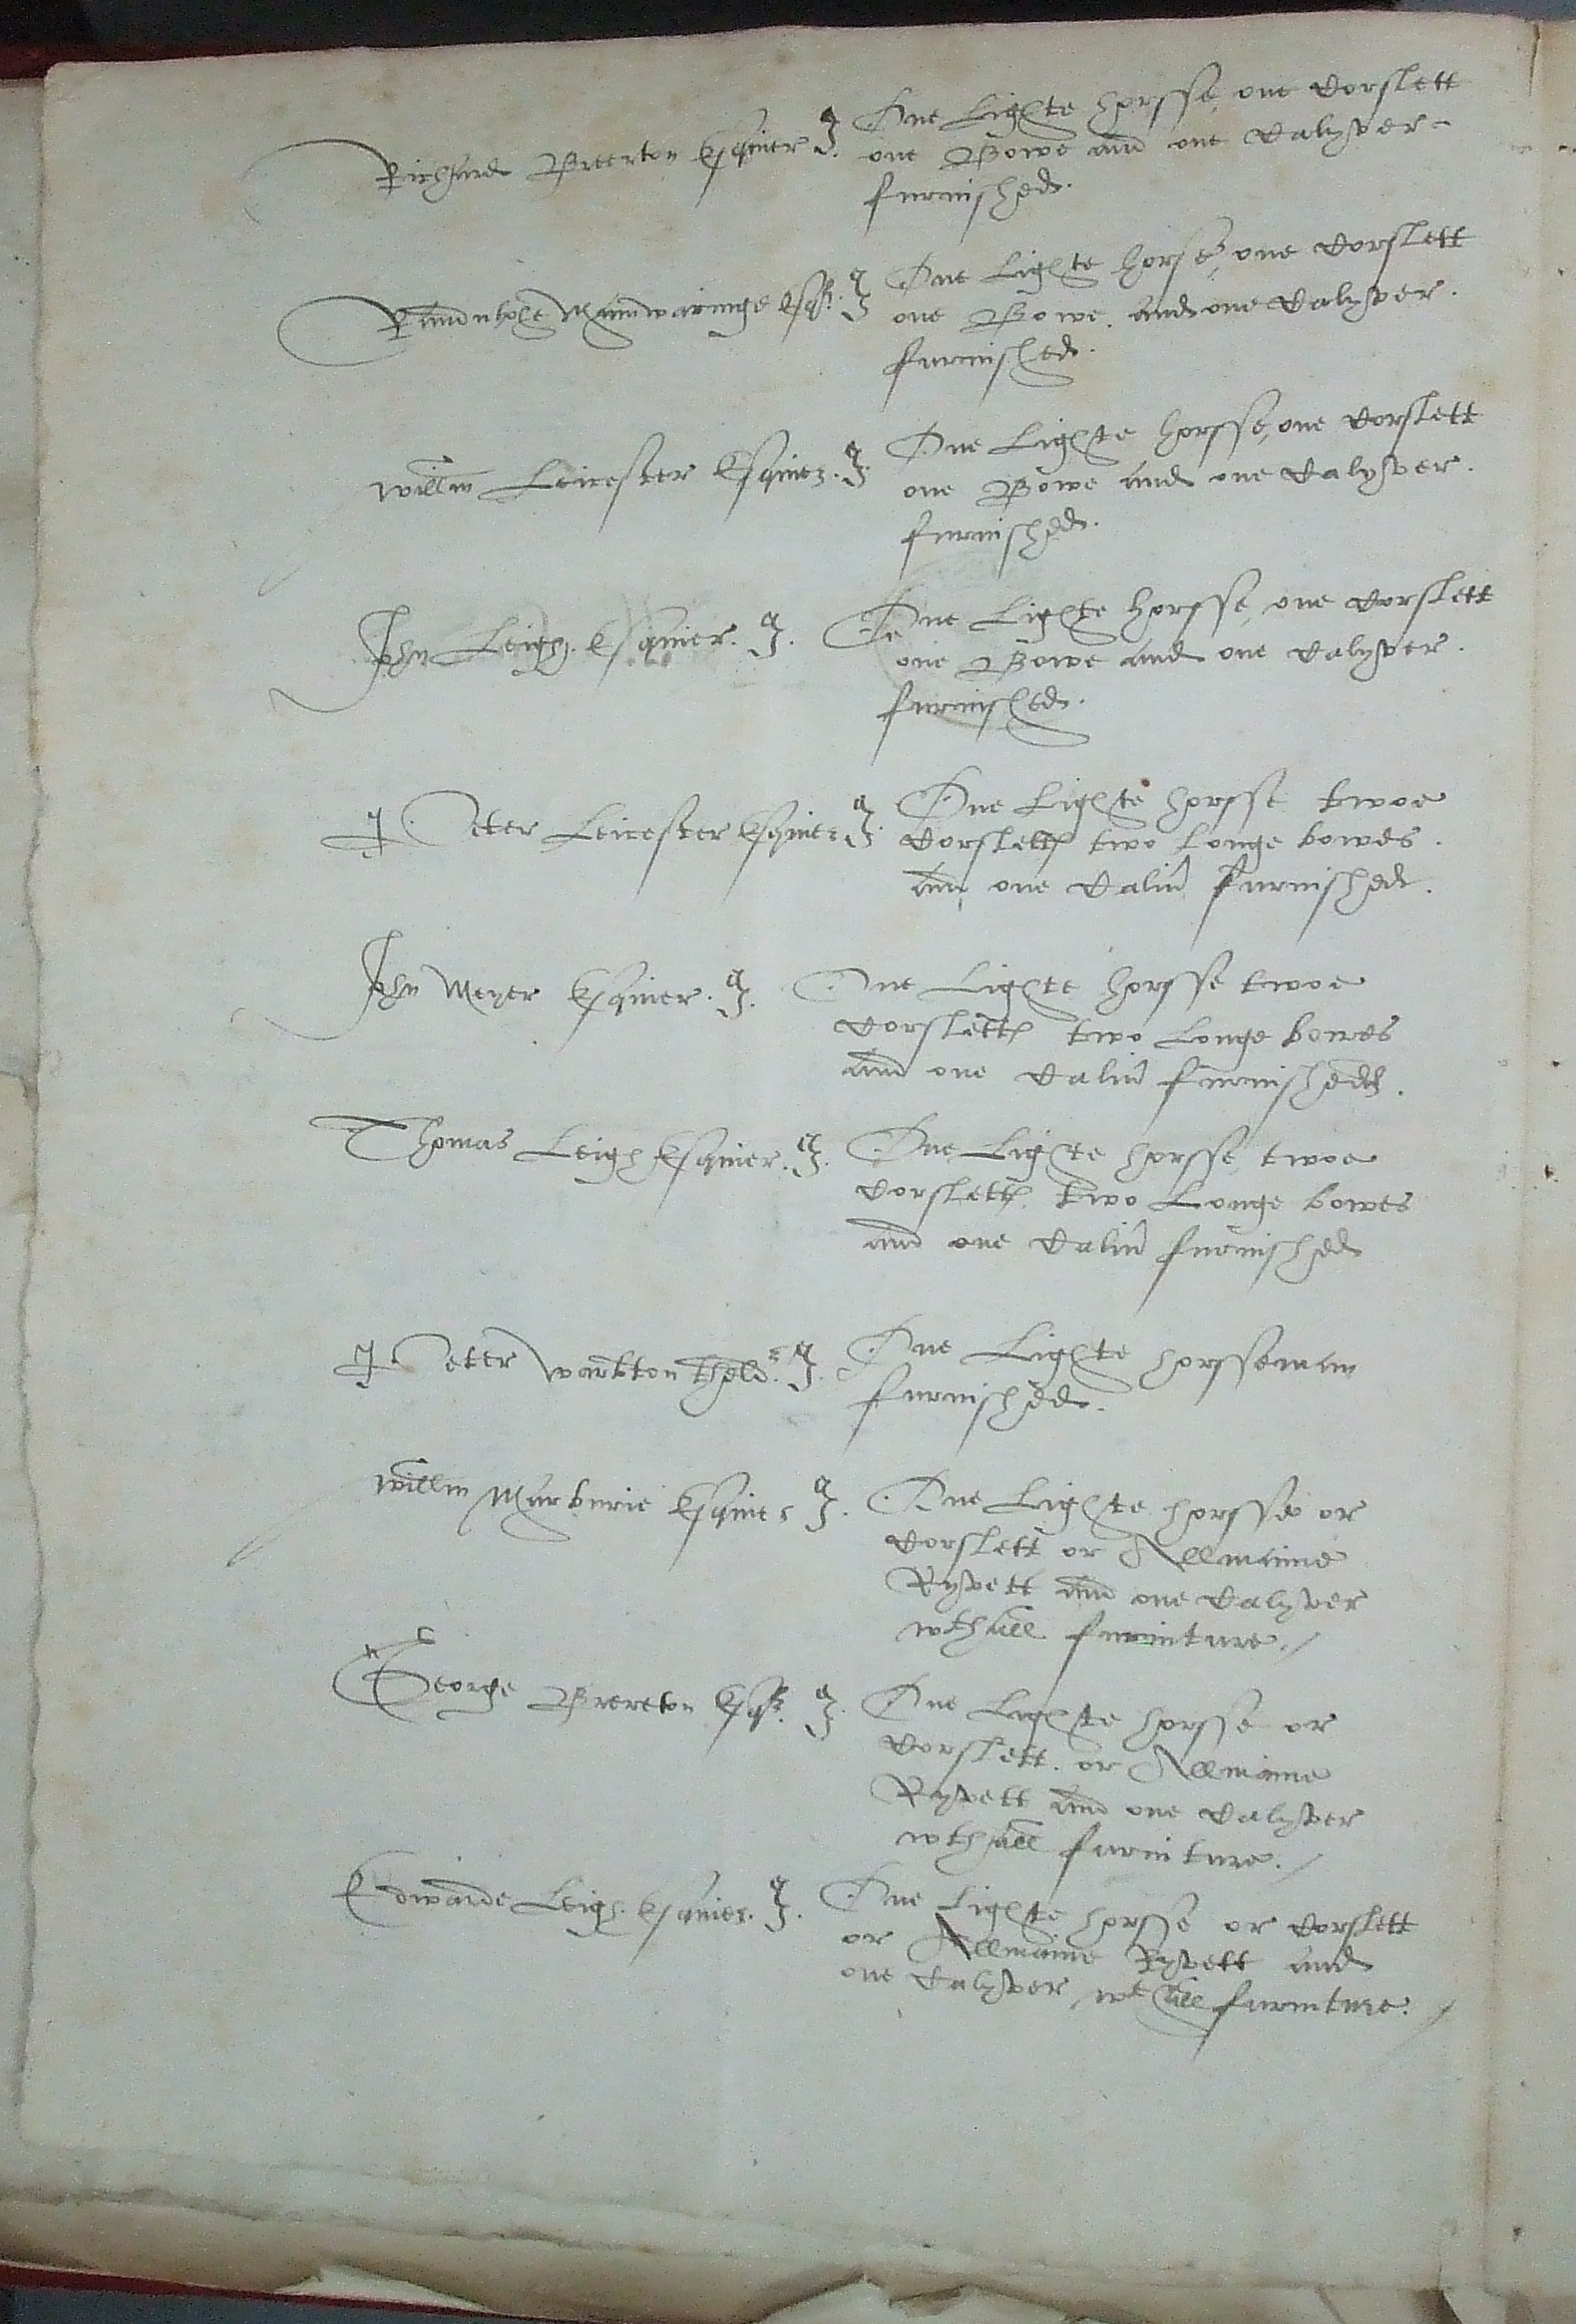 Richard Breerton Esquier One Lighte horsse, one Corslett
one Bowe and one Calyver
furnished.
Randulphe Mainwaringe Esqr. One Lighte horse, one Corslett
one Bowe. and one Calyver.
furnished.
Willm Leicester Esquier. One Lighte horsse, one Corslett
one Bowe and one Calyver.
furnished.
John Leigh. Esquier. One Lighte horsse, one Corslett
one Bowe and one Calyver.
furnished.
Peter Leicester Esquier One Lighte horsse twoe
Corsletts two Longe bowes.
and one Calivr furnished.
John Meyer Esquier. One Lighte horsse twoe
Corsletts two Longe bowes
and one Calivr furnished.
Thomas Leigh Esquier. One Lighte horsse, twoe
Corsletts. two Longe bowes
and one Calivr furnished
Peter Warbton Theldr. One Lighte horsseman
furnished.
Willm Marburie Esquier One Lighte horsse or
Corslett or Allmaine
Ryvett and one Calyver
wth all furniture./
George Brereton Esqr. One Lighte horsse or
Corslett. or Allmaine
Ryvett and one Calyver
wth all furniture./
Edwarde Leigh. Esquier. One Lighte horsse or Corslett
or Allmaine Ryvett and
one Calyver, wt all furniture. /